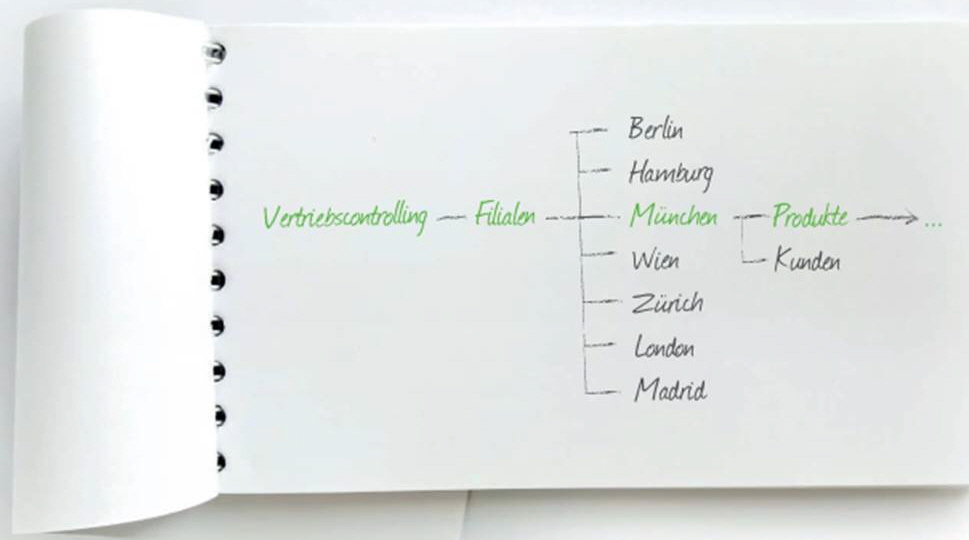 Berlin
Hamburg
Vertriebscontrolling Filialen München Produkte ...
Wien Kunden
Zürich
London
Madrid